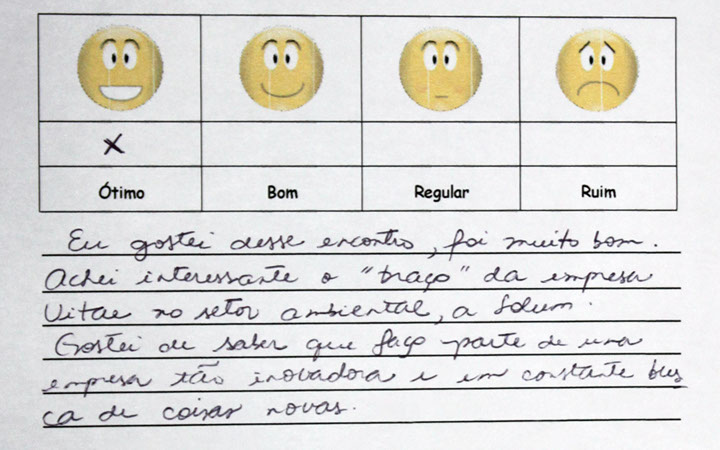 X
Ótimo Bom Regular Ruim
Eu gostei desse encontro, foi muito bom.
Achei interessante o "braço" da empresa
Vitae no setor ambiental, a Solum.
Gostei de saber que faço parte de uma
empresa tão inovadora e em constante bus
ca de coisas novas.